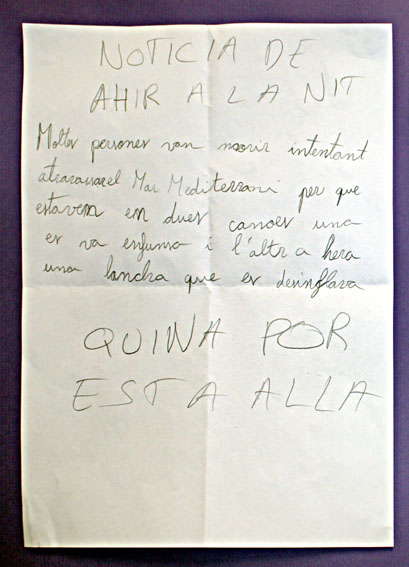 NOTICIA DE
AHIR A LA NIT
Moltes persones van morir intentant
atravassarel Mar Mediterrani per que
estaven en dues canoes una
es va enfunsa i l'altra hera
una lancha que es desinflava
QUINA POR
ESTA ALLA